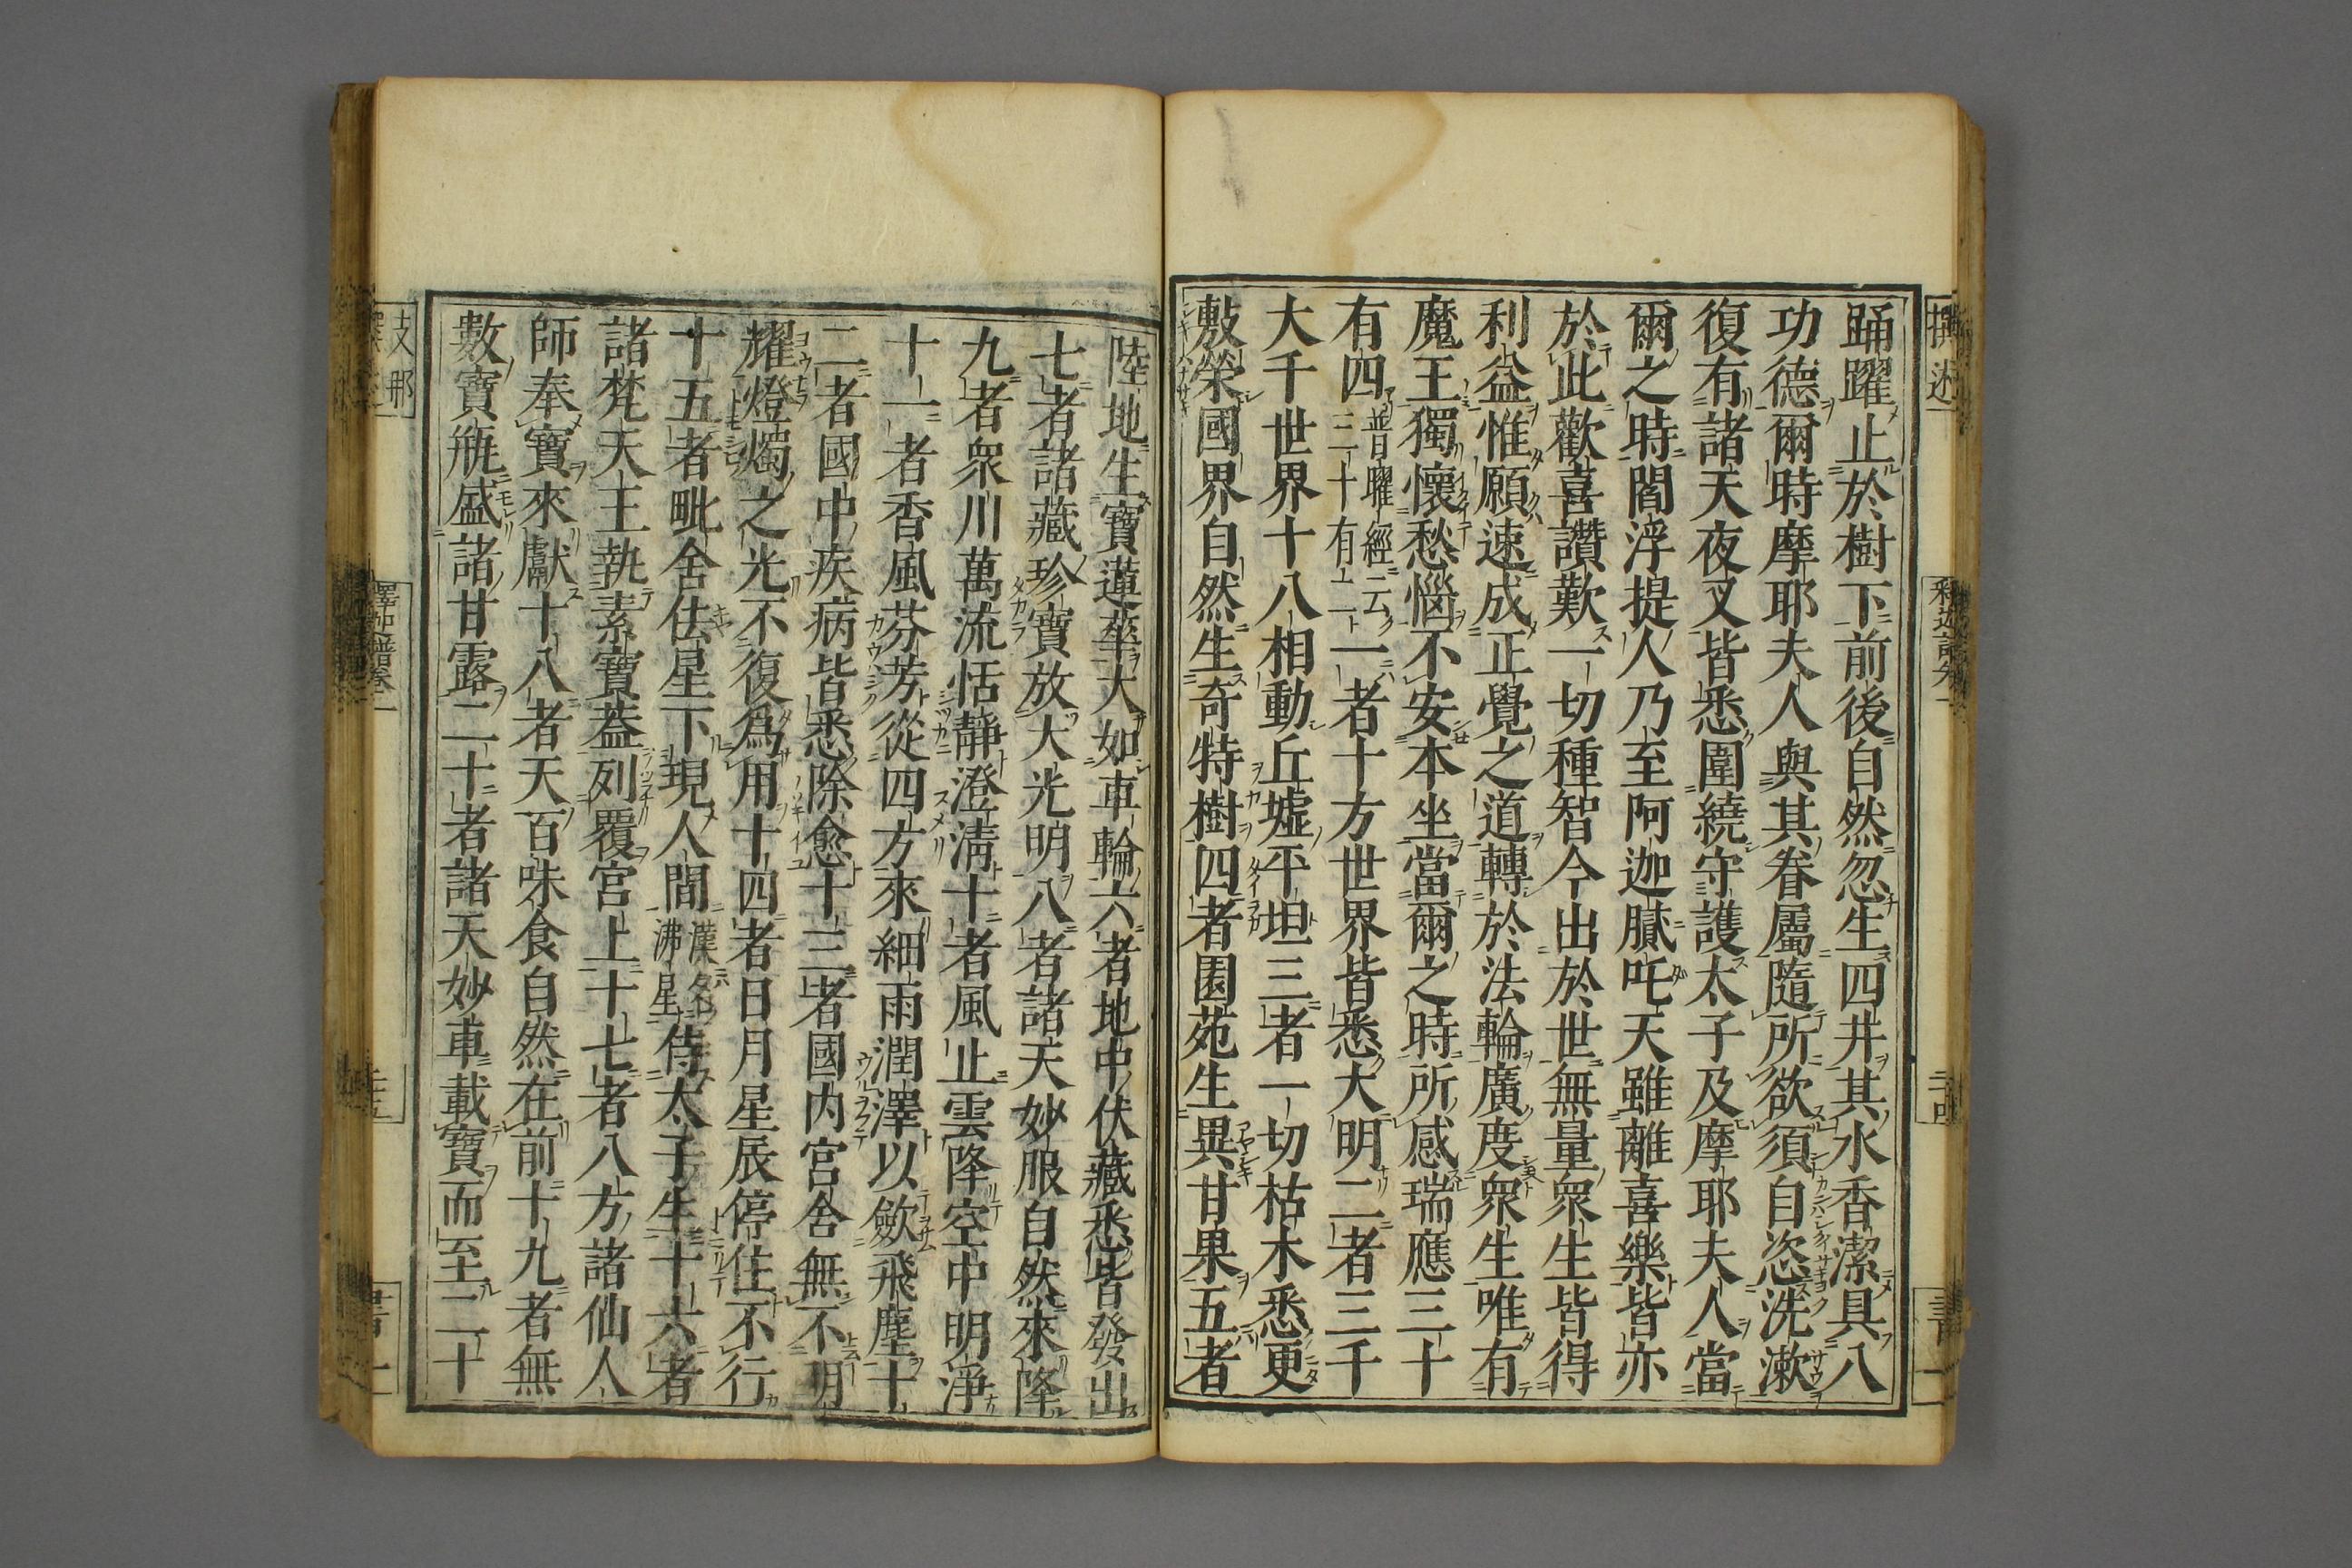 踊躍止於樹下前後自然忽生四井其水香潔具八
功德爾時摩耶夫人與其眷屬隨所欲須自恣洗漱
復有諸天夜叉皆悉圍繞守護太子及摩耶夫人當
爾之時閻浮提人乃至阿迦膩吒天雖離喜樂皆亦
於此歡喜讚歎一切種智今出於世無量衆生皆得
利益惟願速成正覺之道轉於法輪廣度衆生唯有
魔王獨懷愁惱不安本坐當爾之時所感瑞應三十
有四並日曜經云三十有二一者十方世界皆悉大明二者三千
大千世界十八相動丘墟平坦三者一切枯木悉更
敷榮國界自然生奇特樹四者園苑生異甘果五者
陸地生寶蓮華大如車輪六者地中伏藏悉皆發出
七者諸藏珍寶放大光明八者諸天妙服自然來降
九者衆川萬流恬靜澄淸十者風止雲降空中明淨
十一者香風芬芳從四方來細雨潤澤以斂飛塵十
二者國中疾病皆悉除愈十三者國内宮舍無不明
耀燈燭之光不復爲用十四者日月星辰停住不行
十五者毗舍佉星下現人間漢名沸星侍太子生十六者
諸梵天王執素寶蓋列覆宮上十七者八方諸仙人
師奉寶來獻十八者天百味食自然在前十九者無
數寶甁盛諸甘露二十者諸天妙車載寶而至二十